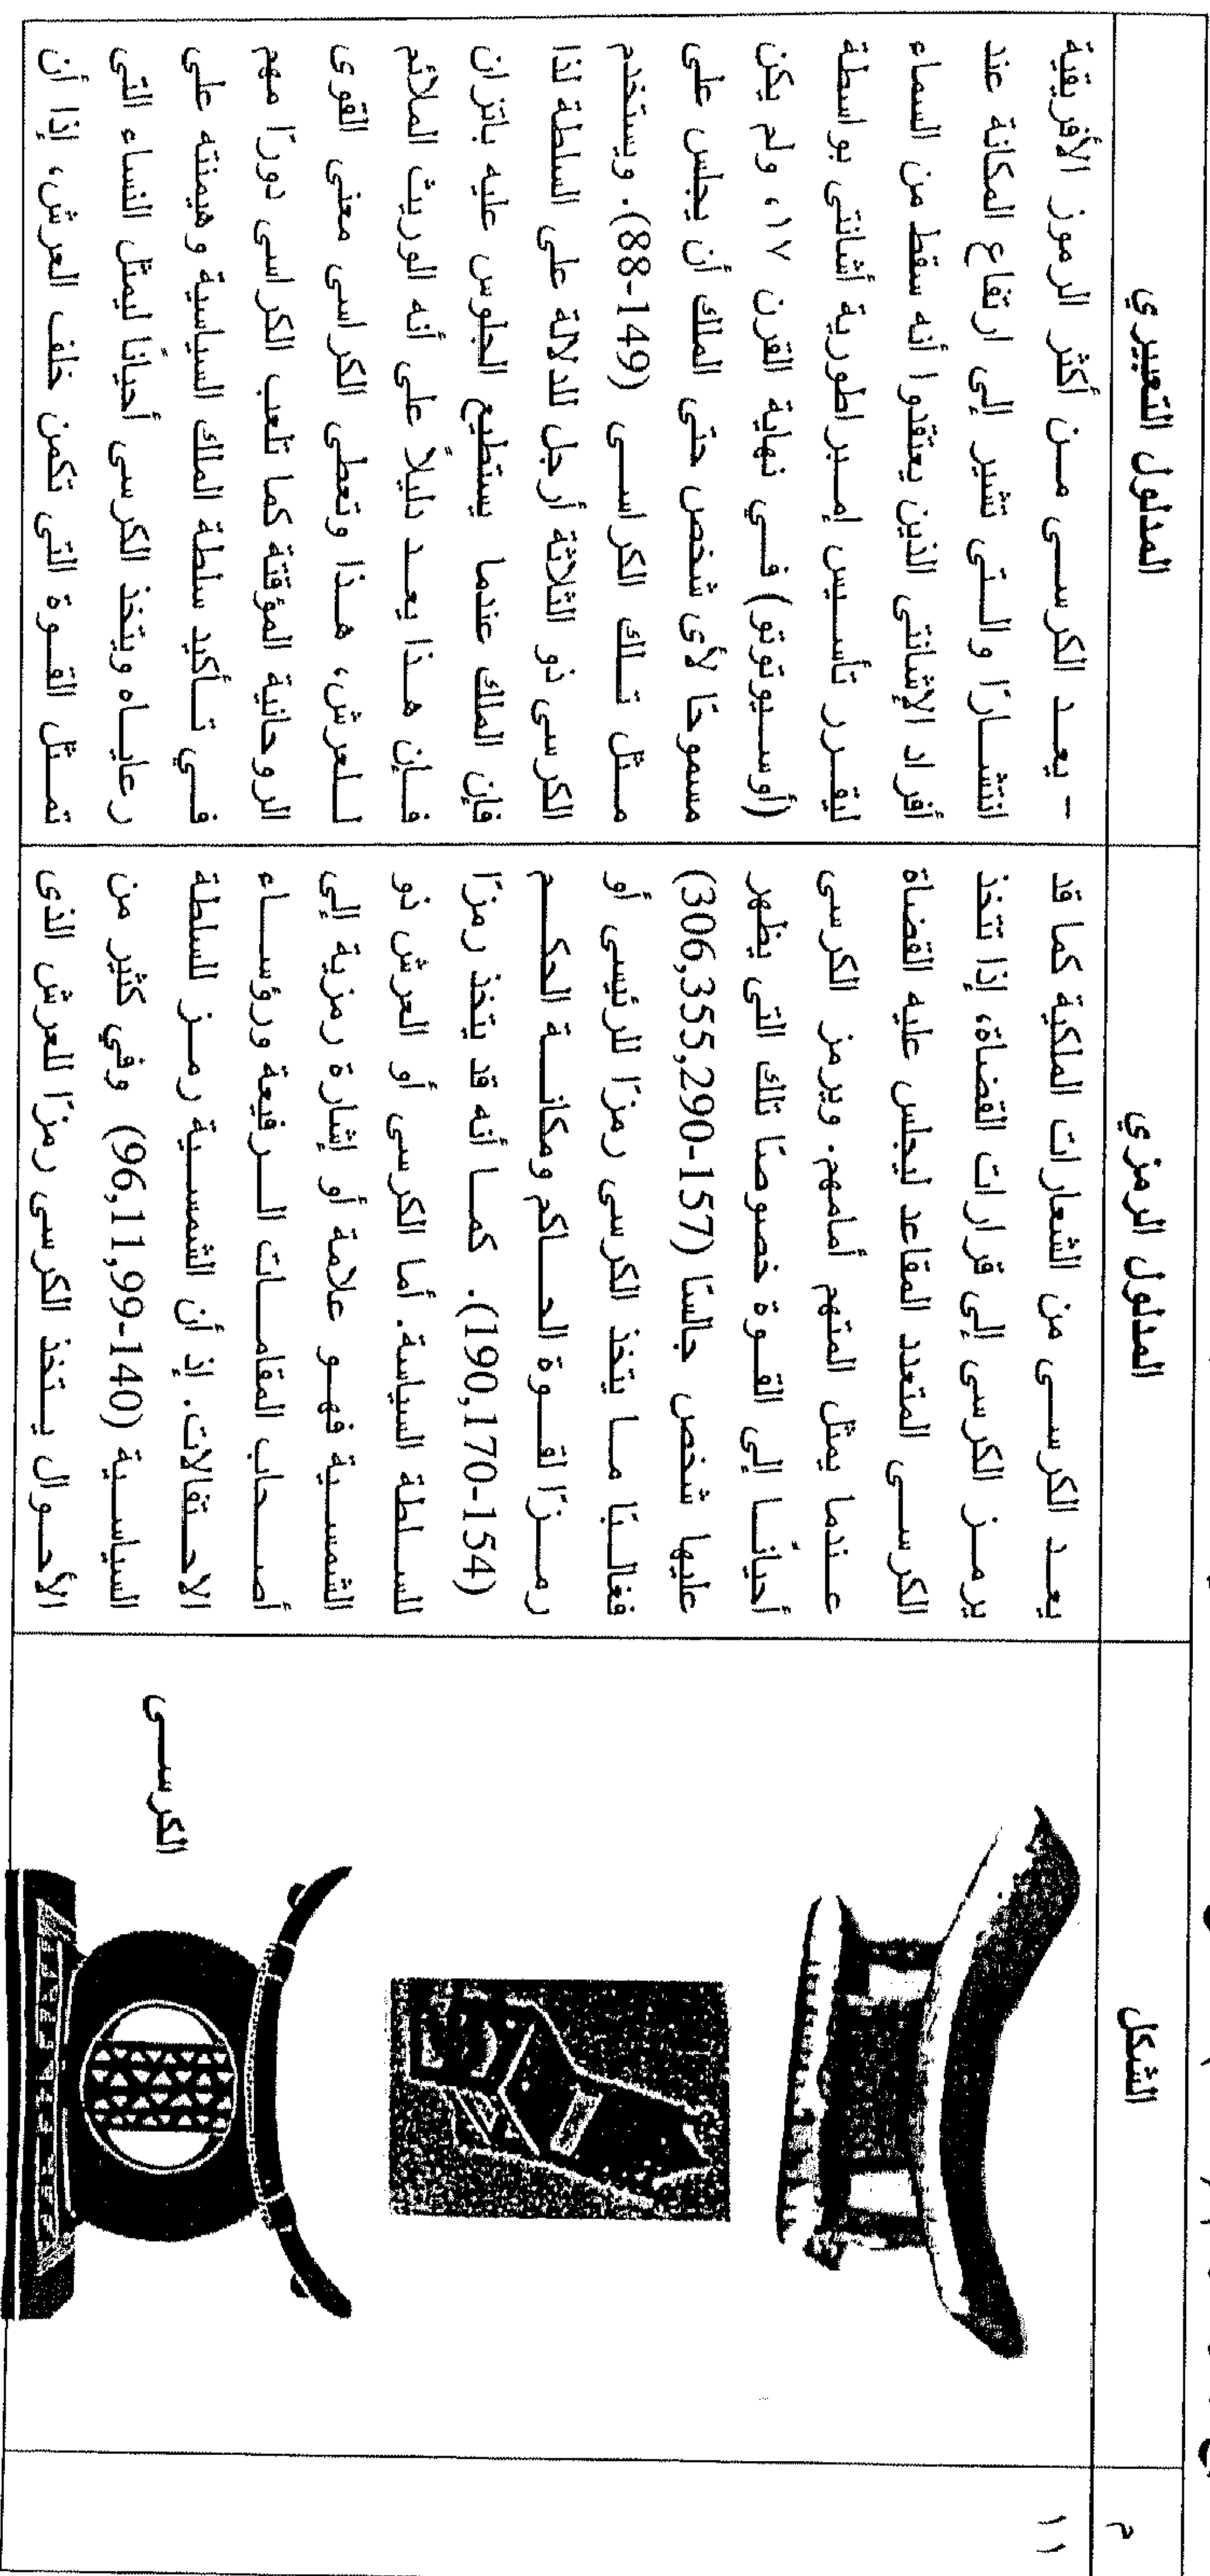 م
الشكل
المدلول الرمزي
المدلول التعبيري
١١
الكرســى
يعــد الكرســى من الشعارات الملكية كما قد
يرمــز الكرسى إلى قرارات القضاة، إذا تتخذ
الكرســى المتعدد المقاعد ليجلس عليه القضاة
عــندما يمثل المتهم أمامهم. ويرمز الكرسى
أحيانًــا إلى القــوة خصوصًا تلك التى يظهر
عليها شخص جالسًا (157-306,355,290)
فغالــبًا مــا يتخذ الكرسى رمزًا للرئيسى أو
رمــزًا لقــوة الحــاكم ومكانــة الحكــم
(154-190,170). كمــا أنه قد يتخذ رمزًا
للســلطة السياسة. أما الكرسى أو العرش ذو
الشمســية فهــو علامة أو إشارة رمزية إلى
أصــحاب المقامــات الــرفيعة ورؤســاء
الاحــتفالات. إذ أن الشمســية رمــز للسلطة
السياســية (140-96,11,99) وفي كثير من
الأحــوال يــتخذ الكرسى رمزًا للعرش الذى
- يعــد الكرســى مــن أكثر الرموز الأفريقية
انتشــارًا والــتى تشير إلى ارتفاع المكانة عند
أفراد الإشانتى الذين يعتقدوا أنه سقط من السماء
ليقــرر تأســيس إمــبراطورية أشانتى بواسطة
(أوســيوتوتو) فــي نهاية القرن ١٧، ولم يكن
مسموحًا لأى شخص حتى الملك أن يجلس على
مــثل تــلك الكراســى (149-88). ويستخدم
الكرسى ذو الثلاثة أرجل للدلالة على السلطة لذا
فإن الملك عندما يستطيع الجلوس عليه باتزان
فــإن هــذا يعــد دليلاً على أنه الوريث الملائم
لــلعرش، هــذا وتعطى الكراسى معنى القوى
الروحانية المؤقتة كما تلعب الكراسى دورًا مهم
فــي تــأكيد سلطة الملك السياسية وهيمنته على
رعايــاه ويتخذ الكرسى أحيانًا ليمثل النساء التى
تمــثل القــوة التى تكمن خلف العرش، إذا أن